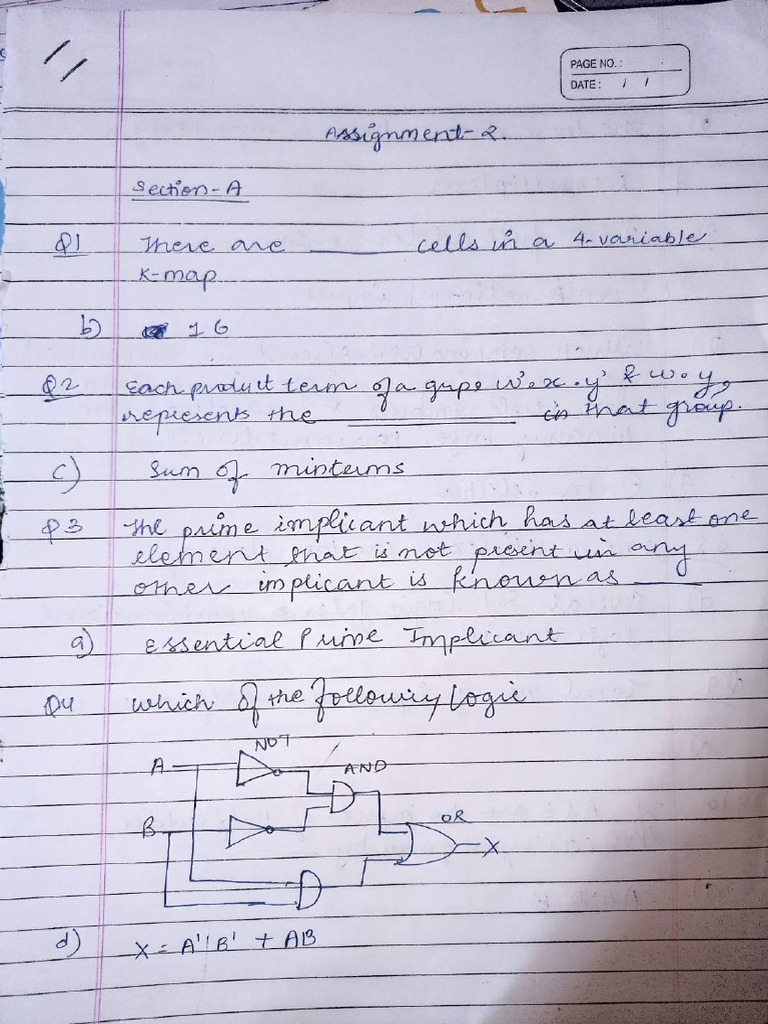 PAGE NO.:
DATE: / /
Assignment-2.
Section-A
Q1 There are ______ cells in a 4-variable
K-map
b) 16
Q2 Each product term of a grupe w'.x.y' & w.y,
represents the ______ in that group.
c) Sum of minterms
Q3 The prime implicant which has at least one
element that is not present in any
other implicant is known as ____
a) Essential Prime Implicant
Q4 which of the following logic
NOT
A
AND
B
OR
X
d) X = A'B' + AB